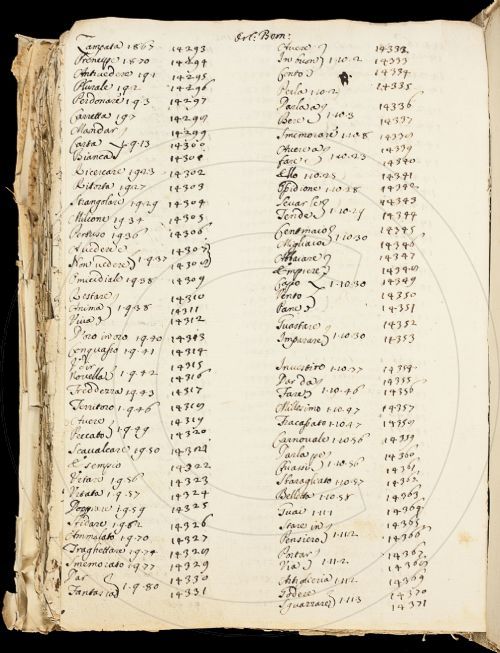 Orl: Bern:
Zampata 1·8·67 14293
Prencipe 1·8·70 14294
Antivedere 1·9·1 14295
Plurale 1·9·2 14296
Perdonare 1·9·3 14297
Carretta 1·9·7 14298
Mandar 14299
Carta 1·9·13 14300
Bianca 14301
Ricercare 1·9·23 14302
Ritorta 1·9·27 14303
Strangolare 1·9·29 14304
Milione 1·9·34 14305
Pertuso 1·9·36 14306
Avedere 14307
Non vedere 1·9·37 14308
Omicidiale 1·9·38 14309
Restare 14310
Anima 1·9·38 14311
Viva 14312
D'oro in oro 1·9·40 14313
Conquasso 1·9·41 14314
14315
Novella 1·9·42 14316
Freddezza 1·9·43 14317
Territoro 1·9·46 14318
Avere 14319
Peccato 1·9·49 14320
Scavalcare 1·9·50 14321
Esempio 14322
Vetare 1·9·56 14323
Vietata 1·9·57 14324
Poggiare 1·9·59 14325
Sfidare 1·9·62 14326
Ammalato 1·9·70 14327
Traghettare 1·9·74 14328
Smemorato 1·9·77 14329
Par 14330
Fantasia 1·9·80 14331
Avere 14332
In buon 1·10·2 14333
Conto 14334
Perla 1·10·2 14335
Parlar 14336
Bene 1·10·3 14337
Smemorare 1·10·8 14338
Avere a 14339
Fare 1·10·23 14340
Ello 1·10·25 14341
Spidione 1·10·28 14342
Levar le 14343
Tende 1·10·29 14344
Centinaio 14345
Migliaio 1·10·30 14346
Abbaiare 14347
Empiere 14348
Capo 1·10·30 14349
Vento 14350
Pane 14351
Guastare 14352
Imparare 1·10·30 14353
Investito 1·10·37 14354
Par da 14355
Fare 1·10·46 14356
Millesimo 1·10·47 14357
Fracassato 1·10·47 14358
Carnovale 1·10·56 14359
Parlar per 14360
Quasi 1·10·56 14361
Sbaragliato 1·10·57 14362
Belletta 1·10·58 14363
Guai 1·11·1 14364
Stare in 14365
Pensiero 1·11·2 14366
Portar 14367
Via 1·11·2 14368
Artiglieria 1·11·2 14369
Fodere 14370
Squarrare 1·11·3 14371